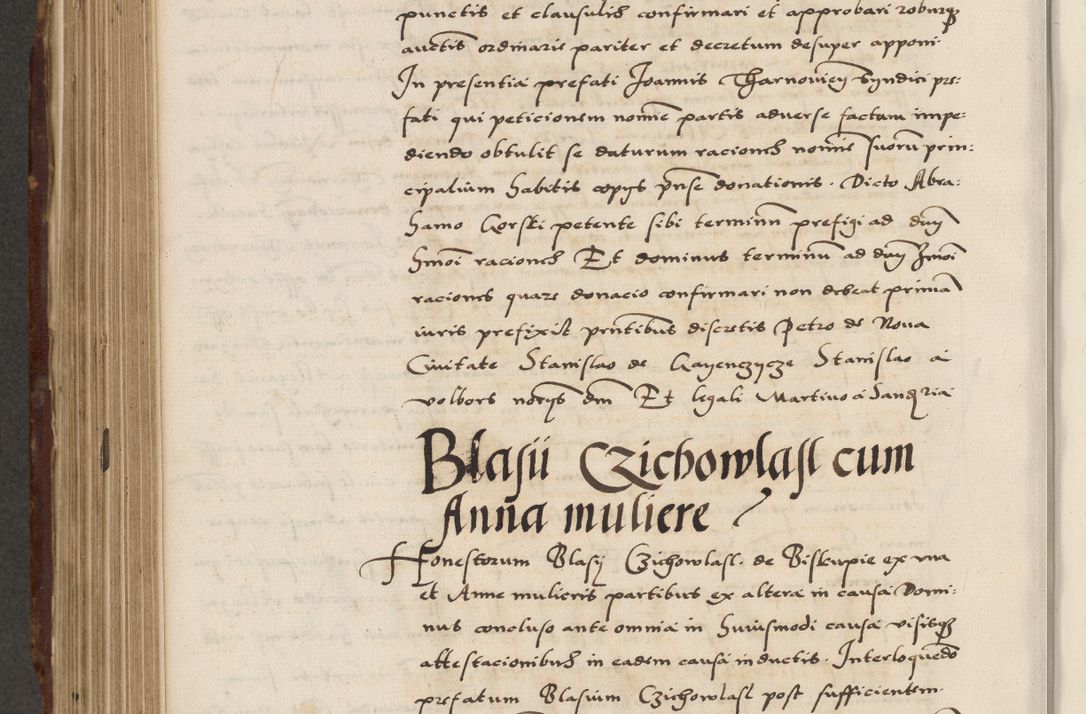 punctis et clausulis confirmari et approbari roburq3
auctis ordinarie pariter et decretum desuper apponi
In presentia prefati Joannis Tharnoviey Syndici pre:
fati qui peticionem noie partis adverse factam impe:
diendo obtulit se daturum raciones nomis suoru prin:
cipalium habitis copys pnse donationis. Dicto Abra:
hamo Gorski petente sibi terminu prefigi ad
hmoi raciones Et dominus terminu ad hmoi
raciones quare donacio confirmari non debeat prima
iuris prefixit pntibus discretis Petro de Nova
Civitate Stanislao de Stanislao a
volbors notys Et legali Martino a
Blasii Czichowlasl cum
Anna muliere
Honestorum Blasy Czichowlasl. de Biskupie ex una
et Anne mulieris partibus ex altera in causa Domi:
nus concluso ante omnia in huiusmodi causa visisq3
attestacionibus in eadem causa inductis. Interloquedo
prefatum Blasium Czichowlasl post sufficientem